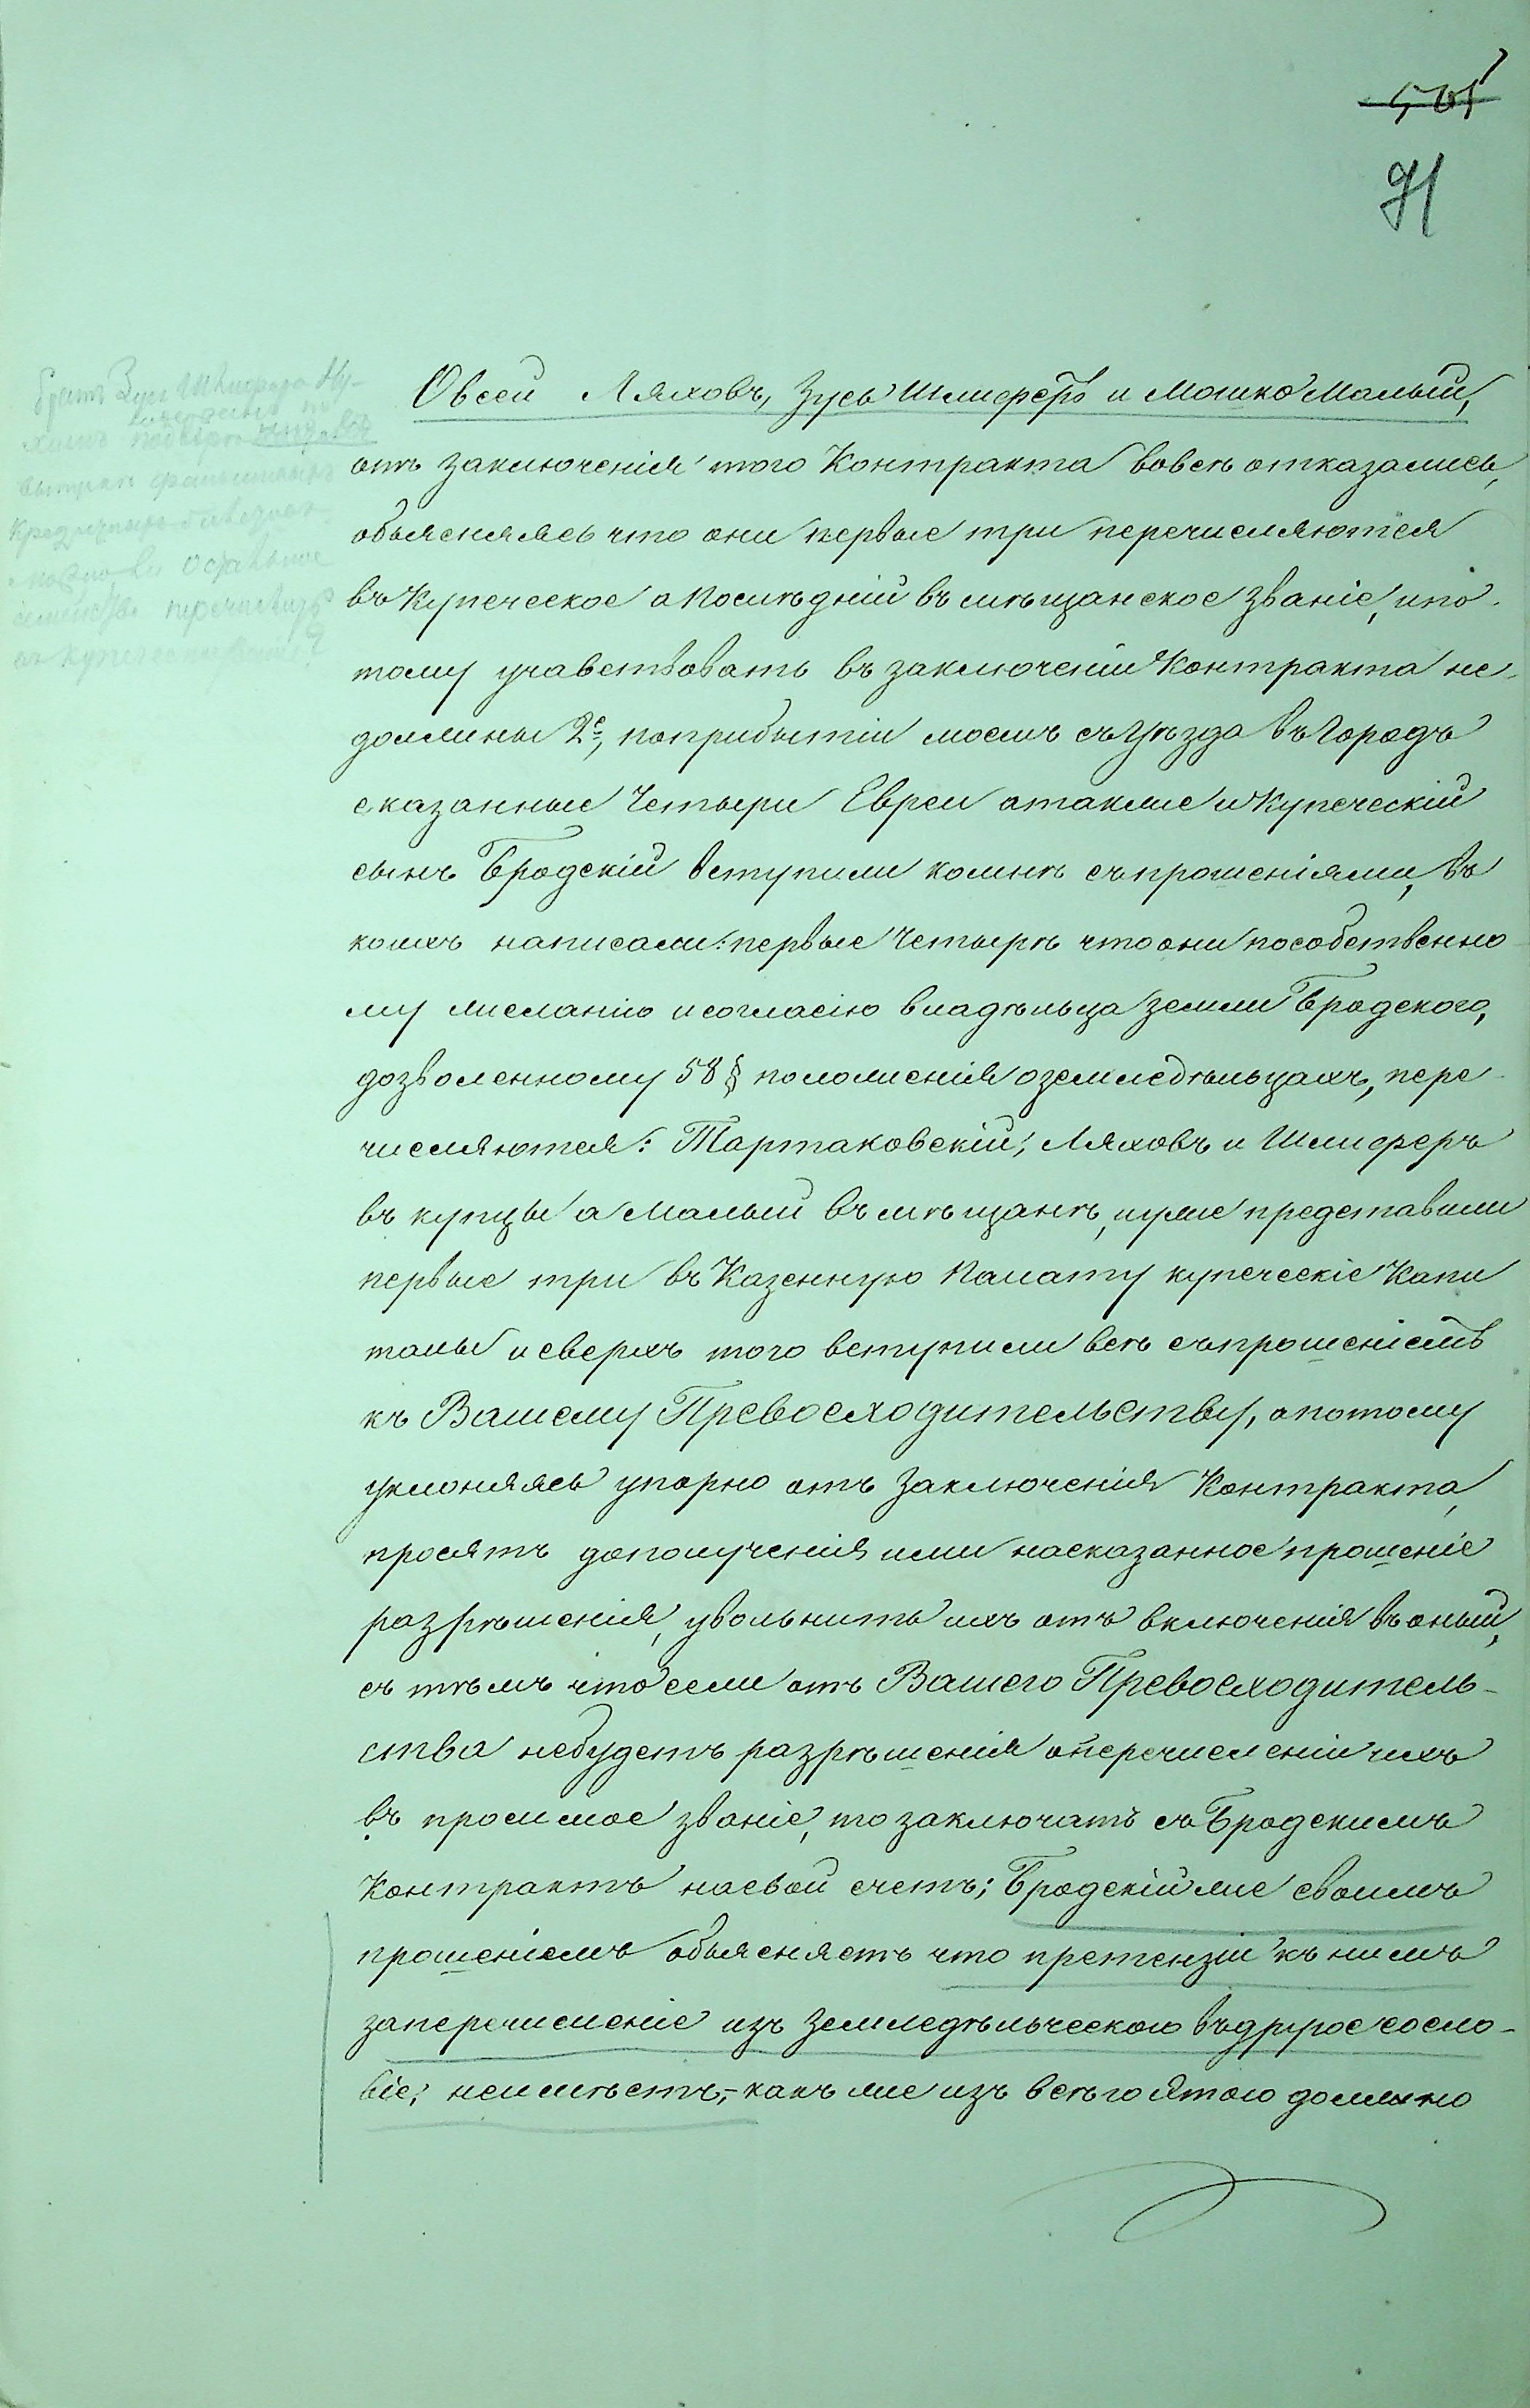 501
91
братъ Зуся Шлифера Ну-
химъ
фальшивыхъ
остальное
семейство перечислить
въ купеческое
Овсей Ляховъ, Зусь Шлиферъ и Мошко Малый,
отъ заключенія того Контракта вовсе отказались,
объясняясь что они первые три перечисляются
въ купеческое а последній въ мѣщанское званіе, и по-
тому учавствовать въ заключеніи Контракта не
должны 2е, по прибытіи моемъ съ Уѣзда въ Городъ
сказанные Четыри Евреи а также и Купеческій
сынъ Бродскій вступили комнѣ съ прошеніями, въ
коихъ написали: первые Четырѣ что они по собственно-
му желанію и согласію владѣльца земли Бродского,
дозволенному 58 § положенія о земледѣльцахъ, пере-
числяются: Тартаковскій, Ляховъ и Шлиферъ
въ купцы а Малый въ мѣщанѣ, и уже представили
первые три въ Казенную Палату купеческіе Капи
талы и сверхъ того вступили всѣ съ прошеніемъ
къ Вашему Превосходительству, а потому
уклоняясь упорно отъ заключенія Контракта,
просятъ до получения ими на сказанное прошеніе
разрѣшенія, увольнить ихъ отъ включенія въ оный,
съ тѣмъ что если отъ Вашего Превосходитель-
ства небудетъ разрѣшенія о перечисленіи ихъ
въ просимое званіе, то заключатъ съ Бродскимъ
Контрактъ на свой счетъ; Бродскій же своимъ
прошеніемъ объясняетъ что претензіи къ нимъ
за перечисленіе изъ земледѣльческого въ другое сосло-
віе, неимѣетъ,- какъ же изъ всѣго этого должно